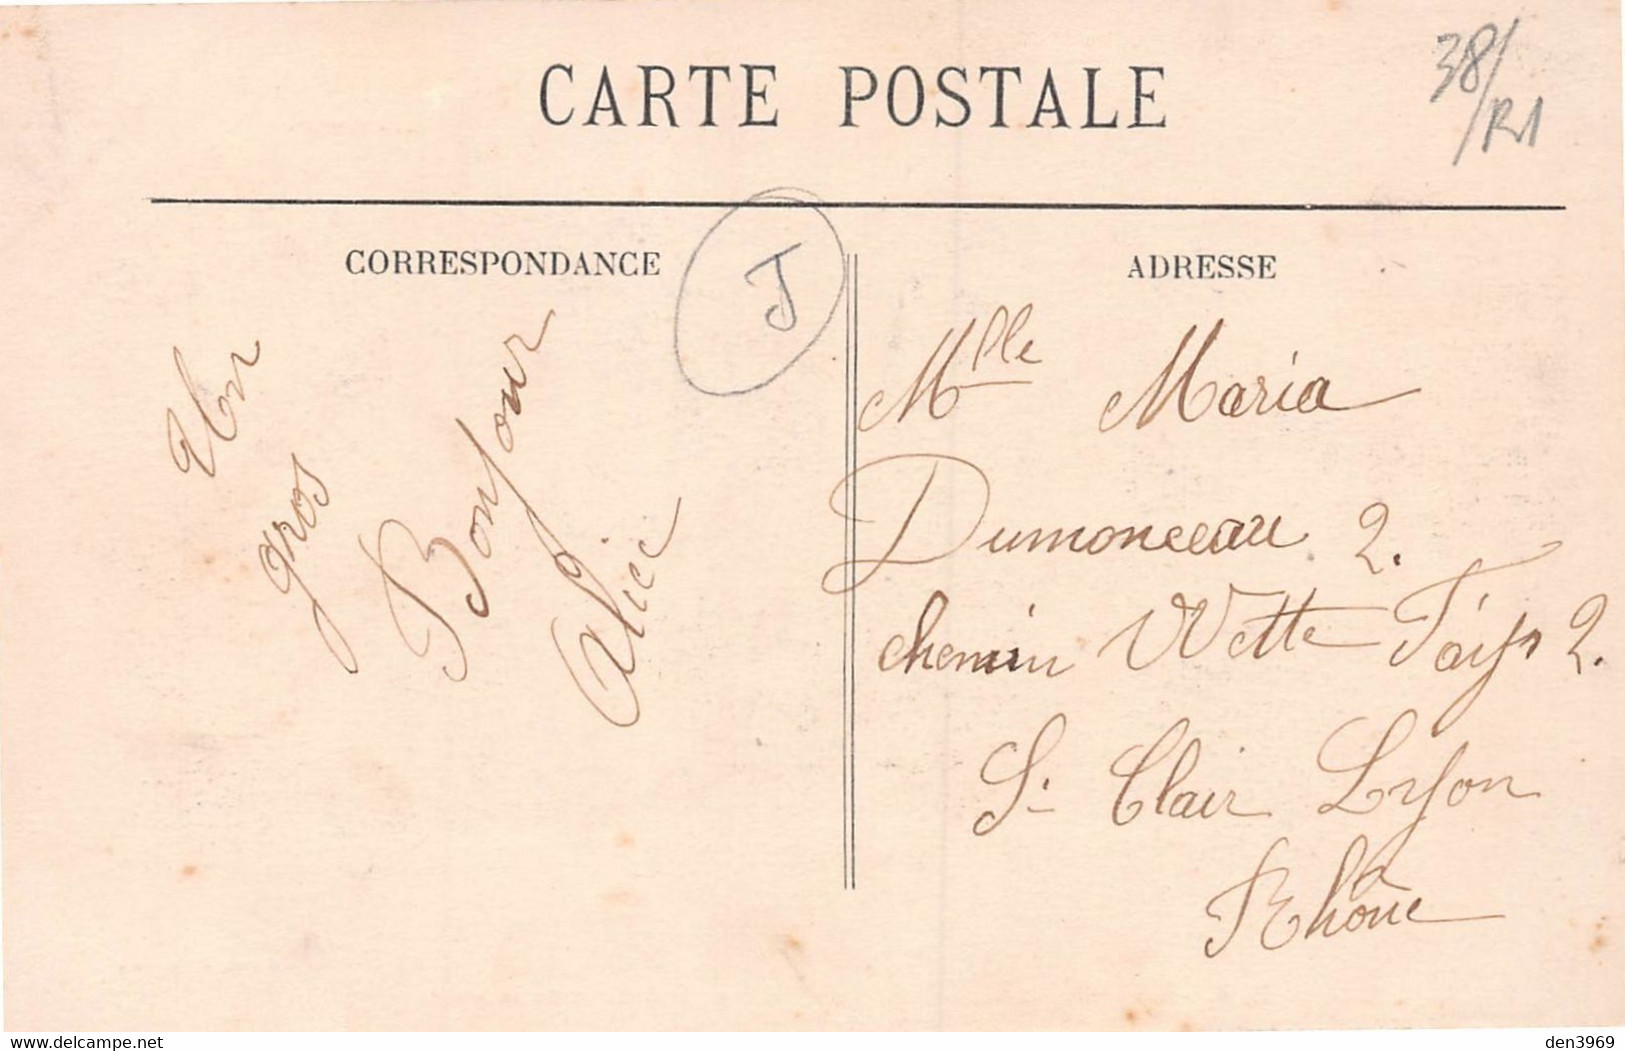 CARTE POSTALE
38/R1
CORRESPONDANCE
J
ADRESSE
Un
gros
Bonjour
Alice
Mlle Maria
Dumonceau 2.
chemin Wette Fays 2.
St Clair Lyon
Rhône
delcampe.net
den3969